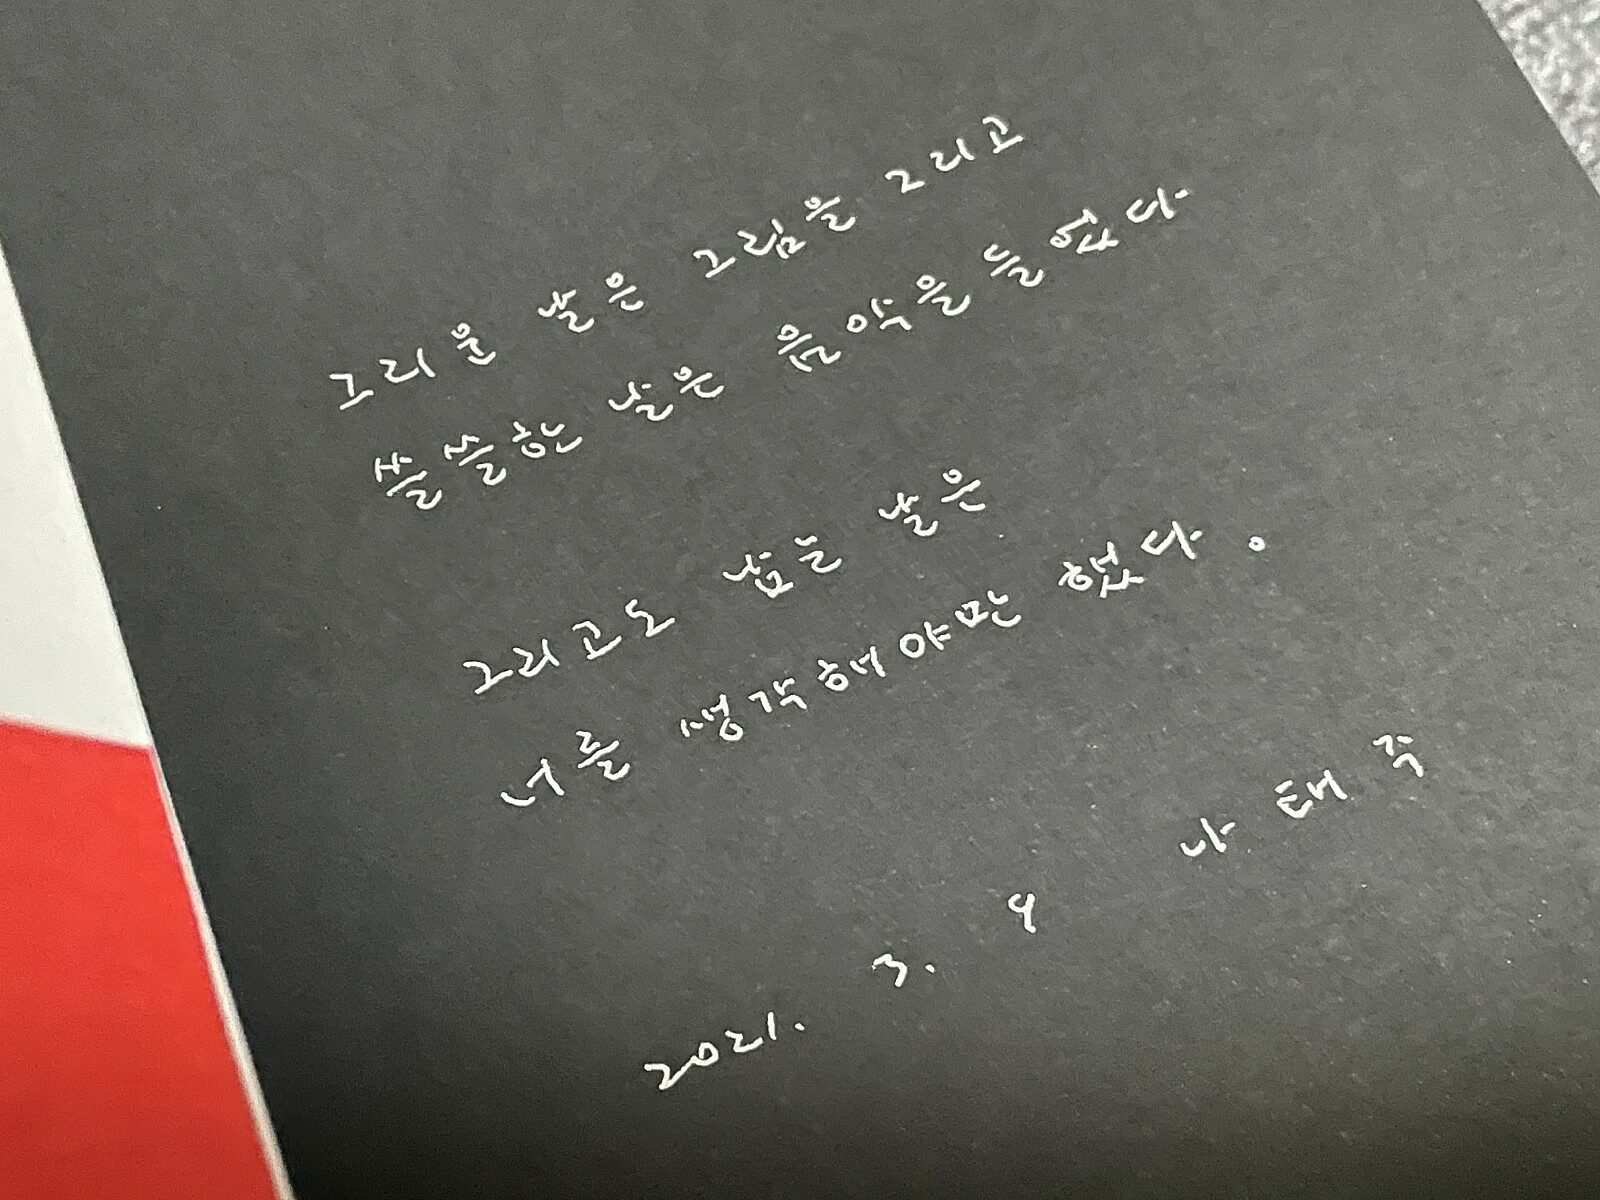 그리운 날은 그림을 그리고
쓸쓸한 날은 음악을 들었다
그리고도 남는 날은
너를 생각해야만 했다.
나태주
2021. 3. 9